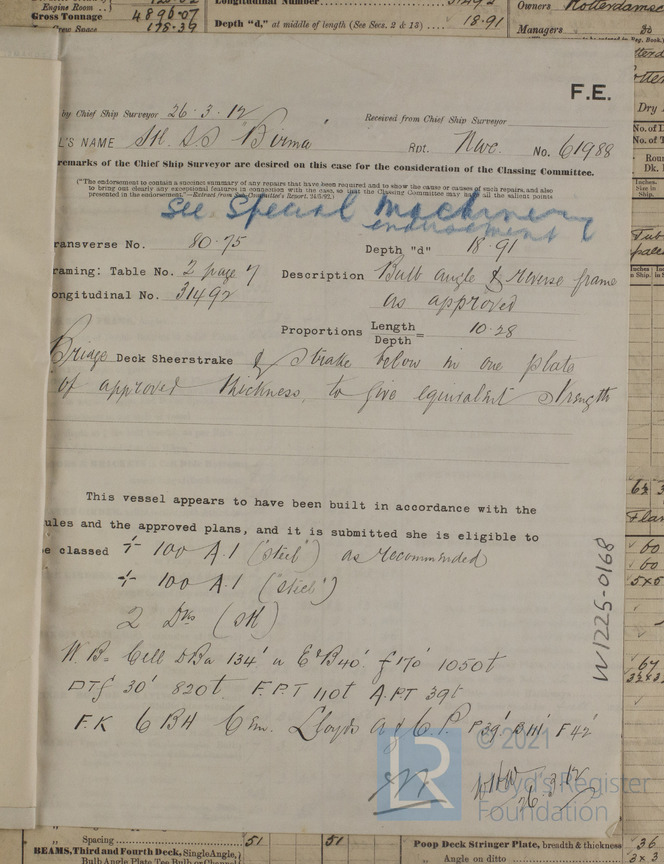 Engine Room
Gross Tonnage 4896.07
Crew Space 178.39
Longitudinal Number 31492
Depth "d," at middle of length (See Secs. 2 & 13) 18.91
Owners Rotterdamsc
Managers
F.E.
by Chief Ship Surveyor 26.3.12
Received from Chief Ship Surveyor
L'S NAME Stl. SS Birma
Rpt. Nwc. No. 61988
remarks of the Chief Ship Surveyor are desired on this case for the consideration of the Classing Committee.
("The endorsement to contain a succinct summary of any repairs that have been required and to show the cause or causes of such repairs, and also
to bring out clearly any exceptional features in connection with the case, so that the Classing Committee may have all the salient points
presented in the endorsement."
See Special Machinery
endorsement
ransverse No. 80.75
Depth "d" 18.91
raming: Table No. 2 page 7
Description Bulb angle & reverse frame
ongitudinal No. 31492
as approved
Proportions Length
Depth = 10.28
Bridge Deck Sheerstrake & Strake below in one plate
of approved thickness, to give equivalent strength
This vessel appears to have been built in accordance with the
ules and the approved plans, and it is submitted she is eligible to
e classed + 100 A.1 (steel) as recommended
+ 100 A.1 (steel)
2 Dks (Stl)
W.B. Cell DBa 134' u E&B 40' f 170' 1050t
DTf 30' 820t F.P.T 110t A.P.T 39t
F.K 6 BH Cem. Lloyds a & C.P. P39' B111' F42'
W1225-0168
26.3.12
LR © 2021
Lloyd's Register
Foundation
Spacing 51 51
BEAMS, Third and Fourth Deck, Single Angle,
Bulb Angle
Poop Deck Stringer Plate, breadth & thickness 36
Angle on ditto